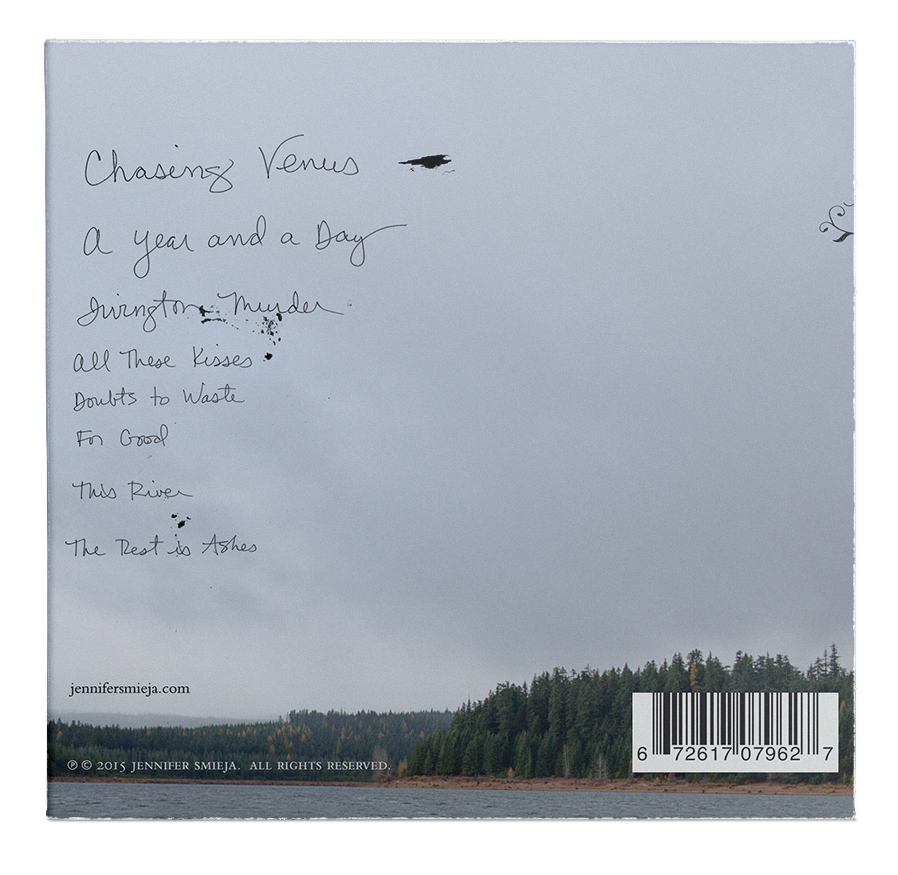 Chasing Venus
A Year and a Day
Irvington Murder
All These Kisses
Doubts to Waste
For Good
This River
The Rest is Ashes
jennifersmieja.com
℗ © 2015 JENNIFER SMIEJA. ALL RIGHTS RESERVED.
6 72617 07962 7